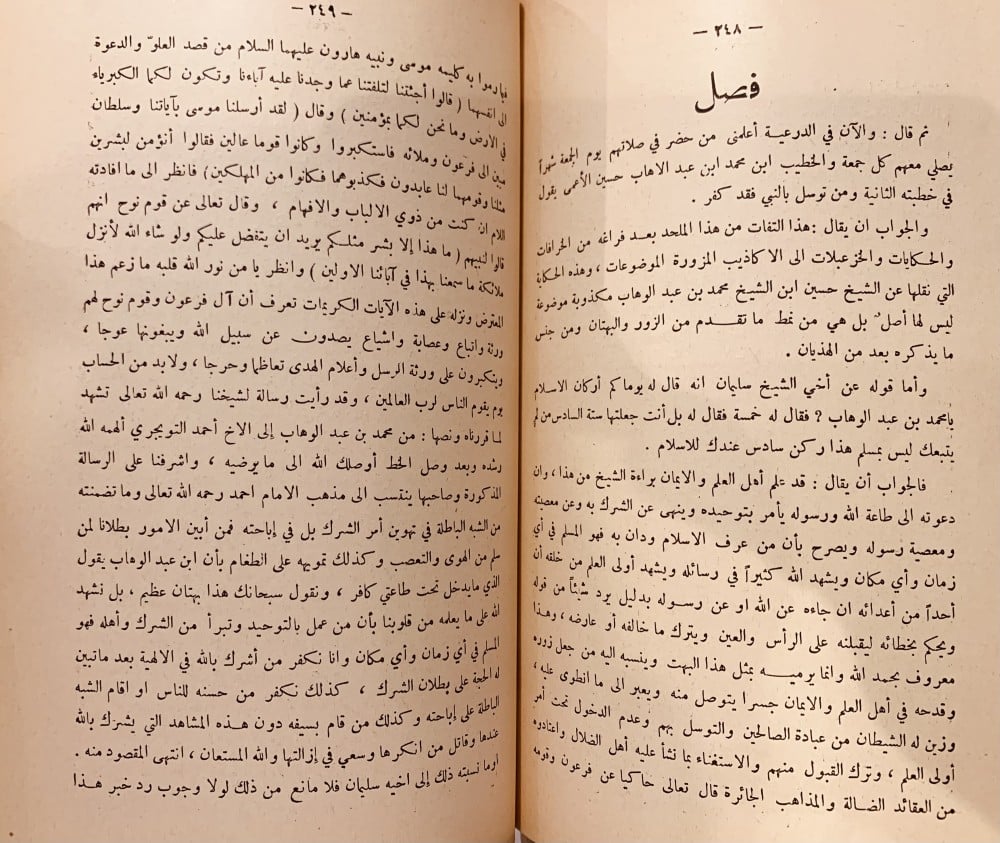 — ٢٤٨ —
فصل
ثم قال : والآن في الدرعية أعلمنى من حضر في صلاتهم يوم الجمعة شهراً
يصلي معهم كل جمعة والخطيب ابن محمد ابن عبد الاهاب حسين الأعمى يقول
في خطبته الثانية ومن توسل بالنبي فقد كفر .
والجواب ان يقال : هذا التفات من هذا الملحد بعد فراغه من الخرافات
والحكايات والخزعبلات الى الاكاذيب المزورة الموضوعات ، وهذه الحكاية
التي نقلها عن الشيخ حسين ابن الشيخ محمد بن عبد الوهاب مكذوبة موضوعة
ليس لها أصل بل هي من نمط ما تقدم من الزور والبهتان ومن جنس
ما يذكره بعد من الهذيان .
وأما قوله عن أخي الشيخ سليمان انه قال له يوما كم أركان الاسلام
يا محمد بن عبد الوهاب ? فقال له خمسة فقال له بل أنت جعلتها ستة السادس من لم
يتبعك ليس بمسلم هذا ركن سادس عندك للاسلام .
فالجواب أن يقال : قد علم أهل العلم والايمان براءة الشيخ من هذا ، وان
دعوته الى طاعة الله ورسوله يأمر بتوحيده وينهى عن الشرك به وعن معصيته
ومعصية رسوله ويصرح بأن من عرف الاسلام ودان به فهو المسلم في أي
زمان وأي مكان ويشهد الله كثيراً في رسائله ويشهد أولى العلم من خلقه أن
أحداً من أعدائه ان جاءه عن الله او عن رسوله بدليل يرد شيئاً من قوله
ويحكم بخطائه ليقبلنه على الرأس والعين ويترك ما خالفه أو عارضه ، وهذا
معروف بحمد الله وانما يرميه بمثل هذا البهت وينسبه اليه من جعل زوره
وقدحه في أهل العلم والايمان جسرا يتوصل منه ويعبر الى ما انطوى عليه ،
وزين له الشيطان من عبادة الصالحين والتوسل بهم وعدم الدخول تحت أمر
أولى العلم ، وترك القبول منهم والاستغناء بما نشأ عليه أهل الضلال واعتادوه
من العقائد الضالة والمذاهب الجائرة قال تعالى حاكيا عن فرعون وقومه
— ٢٤٩ —
فيما رموا به كليمه موسى ونبيه هارون عليهما السلام من قصد العلوّ والدعوة
الى انفسهما ( قالوا أجئتنا لتلفتنا عما وجدنا عليه آباءنا وتكون لكما الكبرياء
في الارض وما نحن لكما بمؤمنين ) وقال ( لقد أرسلنا موسى بآياتنا وسلطان
مبين الى فرعون وملائه فاستكبروا وكانوا قوما عالين فقالوا أنؤمن لبشرين
مثلنا وقومهما لنا عابدون فكذبوهما فكانوا من المهلكين) فانظر الى ما افادته
اللام ان كنت من ذوي الالباب والافهام ، وقال تعالى عن قوم نوح انهم
قالوا لنبيهم ( ما هذا إلا بشر مثلكم يريد ان يتفضل عليكم ولو شاء الله لأنزل
ملائكة ما سمعنا بهذا في آبائنا الاولين ) وانظر يا من نور الله قلبه ما زعم هذا
المعترض ونزله على هذه الآيات الكريمات تعرف أن آل فرعون وقوم نوح لهم
ورثة واتباع وعصابة واشياع يصدون عن سبيل الله ويبغونها عوجا ،
ويتكبرون على ورثة الرسل وأعلام الهدى تعاظما وحرجا ، ولابد من الحساب
يوم يقوم الناس لرب العالمين ، وقد رأيت رسالة لشيخنا رحمه الله تعالى تشهد
لما قررناه ونصها : من محمد بن عبد الوهاب إلى الاخ أحمد التويجري ألهمه الله
رشده وبعد وصل الخط أوصلك الله الى ما يرضيه ، واشرفنا على الرسالة
المذكورة وصاحبها ينتسب الى مذهب الامام احمد رحمه الله تعالى وما تضمنته
من الشبه الباطلة في تهوين أمر الشرك بل في إباحته فمن أبين الامور بطلانا لمن
سلم من الهوى والتعصب وكذلك تمويهه على الطغام بأن ابن عبد الوهاب يقول
الذي ما يدخل تحت طاعتي كافر ، ونقول سبحانك هذا بهتان عظيم ، بل نشهد
الله على ما يعلمه من قلوبنا بأن من عمل بالتوحيد وتبرأ من الشرك وأهله فهو
المسلم في أي زمان وأي مكان وانا نكفر من أشرك بالله في الالهية بعد ما تبين
له الحجة على بطلان الشرك ، كذلك نكفر من حسنه للناس او اقام الشبه
الباطلة على إباحته وكذلك من قام بسيفه دون هذه المشاهد التي يشرك بالله
عندها وقاتل من انكرها وسعي في إزالتها والله المستعان ، انتهى المقصود منه .
وما نسبته ذلك إلى اخيه سليمان فلا مانع من ذلك لولا وجوب رد خبر هذا